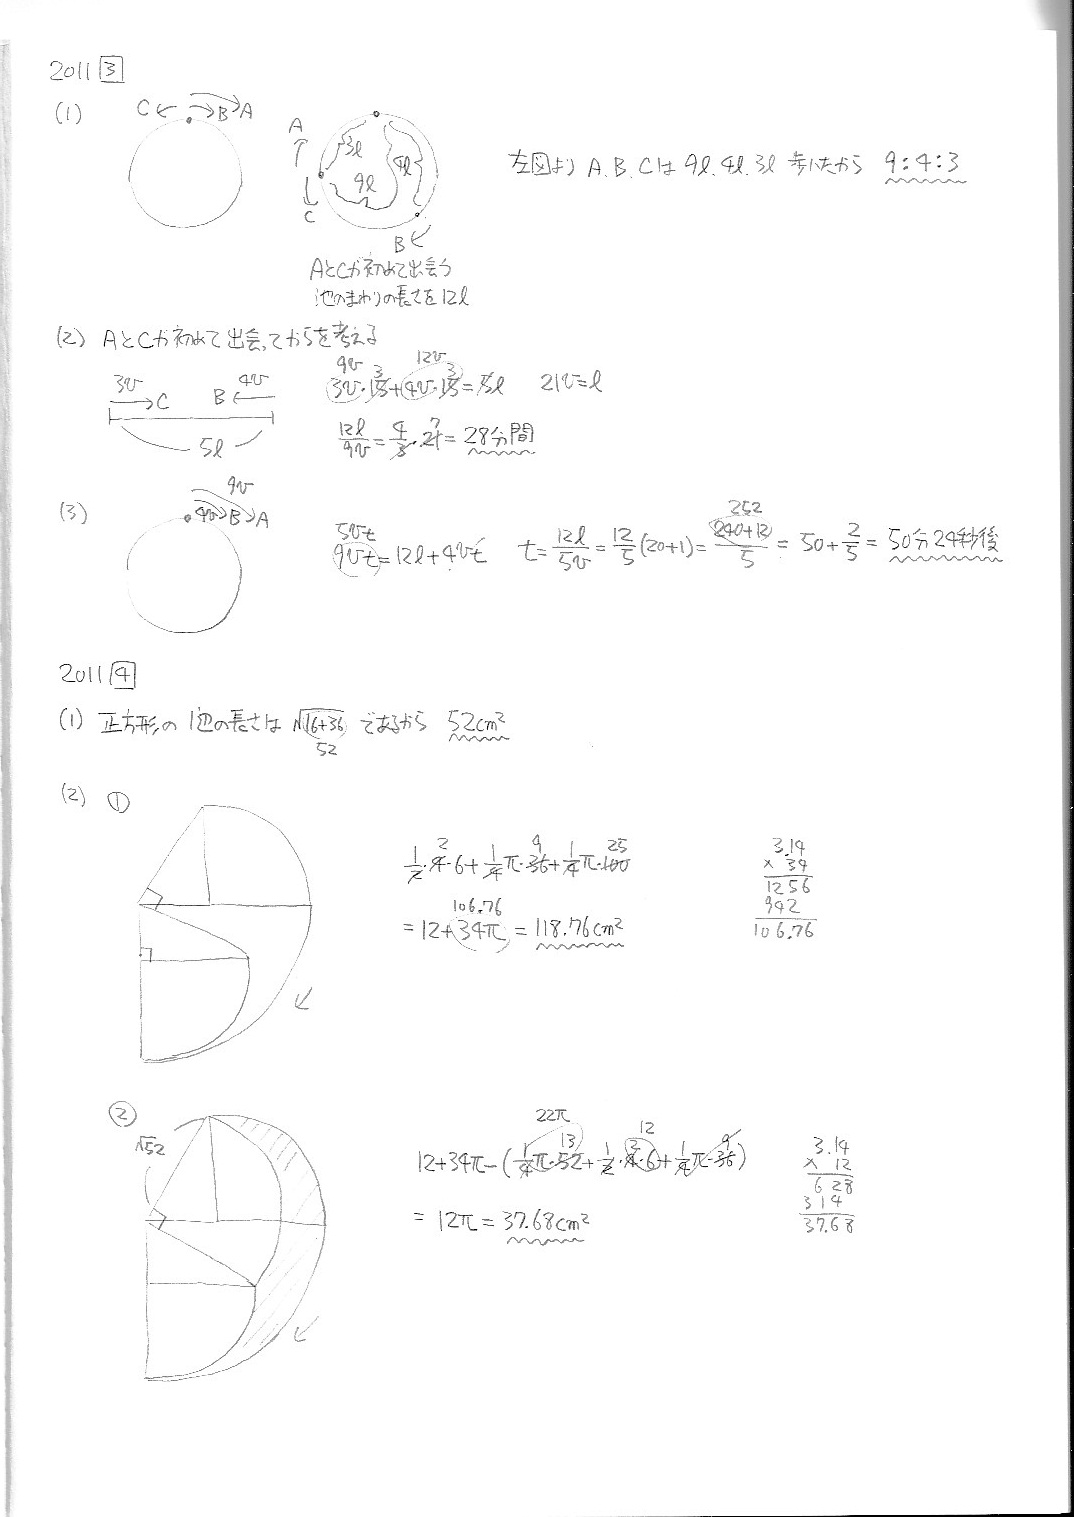 2011 3
(1)
C ← → B → A
A
3l
9l
4l
C
B
AとCが初めて出会う
池のまわりの長さを12l
左図より A、B、Cは 9l、4l、3l 歩いたから 9:4:3
(2) AとCが初めて出会ってからを考える
3v C B 4v
5l
9v 3 12v 3
3v・15+4v・15=5l 21v=l
12l/9v = 4/3・21 7 = 28分間
(3)
9v
4v B A
5vt
9vt=12l+4vt t=12l/5v=12/5(20+1)=252 240+12/5=50+2/5=50分24秒後
2011 4
(1) 正方形の1辺の長さは √16+36 であるから 52cm²
52
(2) ①
1/2・4 2・6+1/4π・36 9+1/4π・100 25
106.76
=12+34π=118.76cm²
3.14
× 34
1256
942
106.76
②
√52
22π
12+34π-(1/4π・52 13+1/2・4 2・6 12+1/4π・36 9)
=12π=37.68cm²
3.14
× 12
628
314
37.68